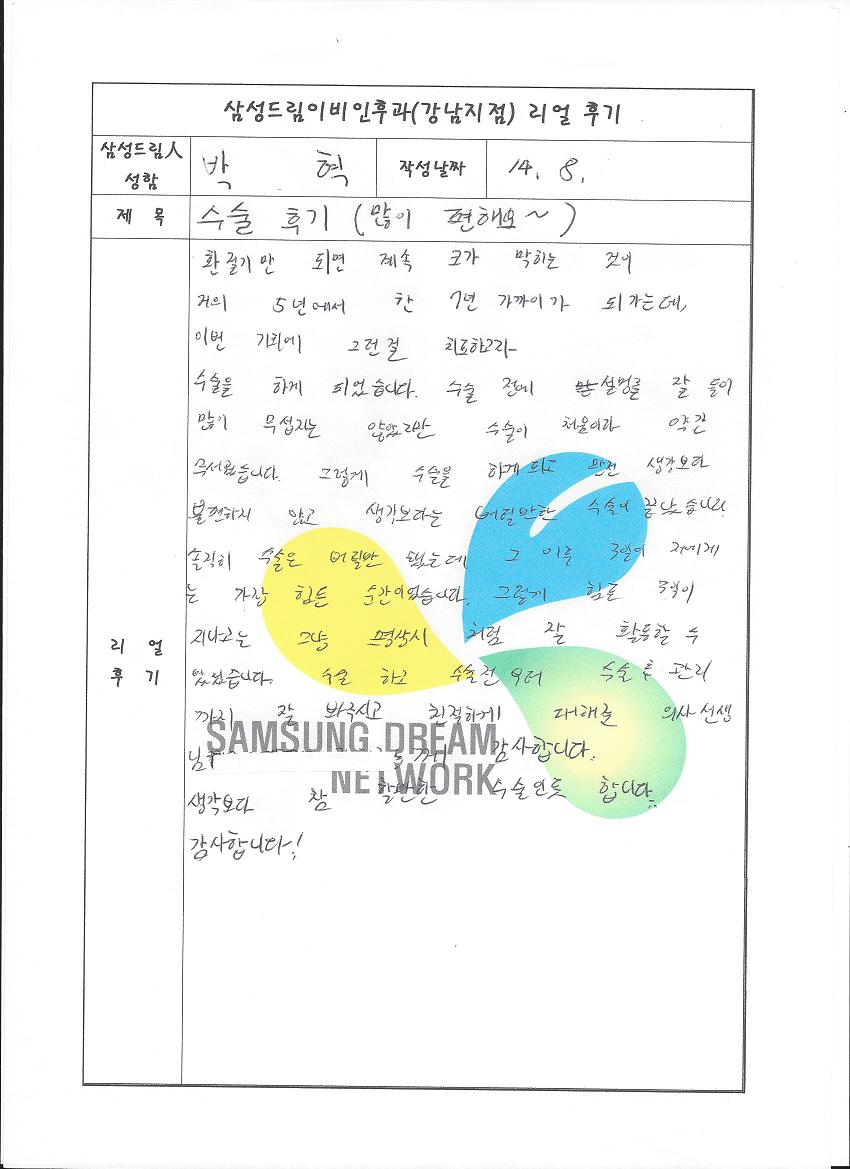 삼성드림이비인후과(강남지점) 리얼 후기
삼성드림人
성함
박 혁
작성날짜
14. 8.
제 목
수술 후기 (많이 편해요~)
환절기만 되면 계속 코가 막히는 것이
거의 5년에서 한 7년 가까이가 되가는데,
이번 기회에 그런걸 치료하고자
수술을 하게 되었습니다. 수술 전에 설명을 잘 들어
많이 무섭지는 않았지만 수술이 처음이라 약간
무서웠습니다. 그렇게 수술을 하게 되고 생각보다
불편하지 않고 생각보다는 버틸만한 수술이 끝났습니다.
솔직히 수술은 버틸만 했는데 그 이후 3일이 저에게
는 가장 힘든 순간이었습니다. 그렇게 힘든 3일이
지나고는 그냥 평상시 처럼 잘 활동할 수
있었습니다. 수술 하고 수술전 부터 수술 후 관리
까지 잘 봐주시고 친절하게 대해준 의사 선생
님 들께 감사합니다.
생각보다 참 할만한 수술인듯 합니다.
감사합니다!
리 얼
후 기
SAMSUNG DREAM
NETWORK